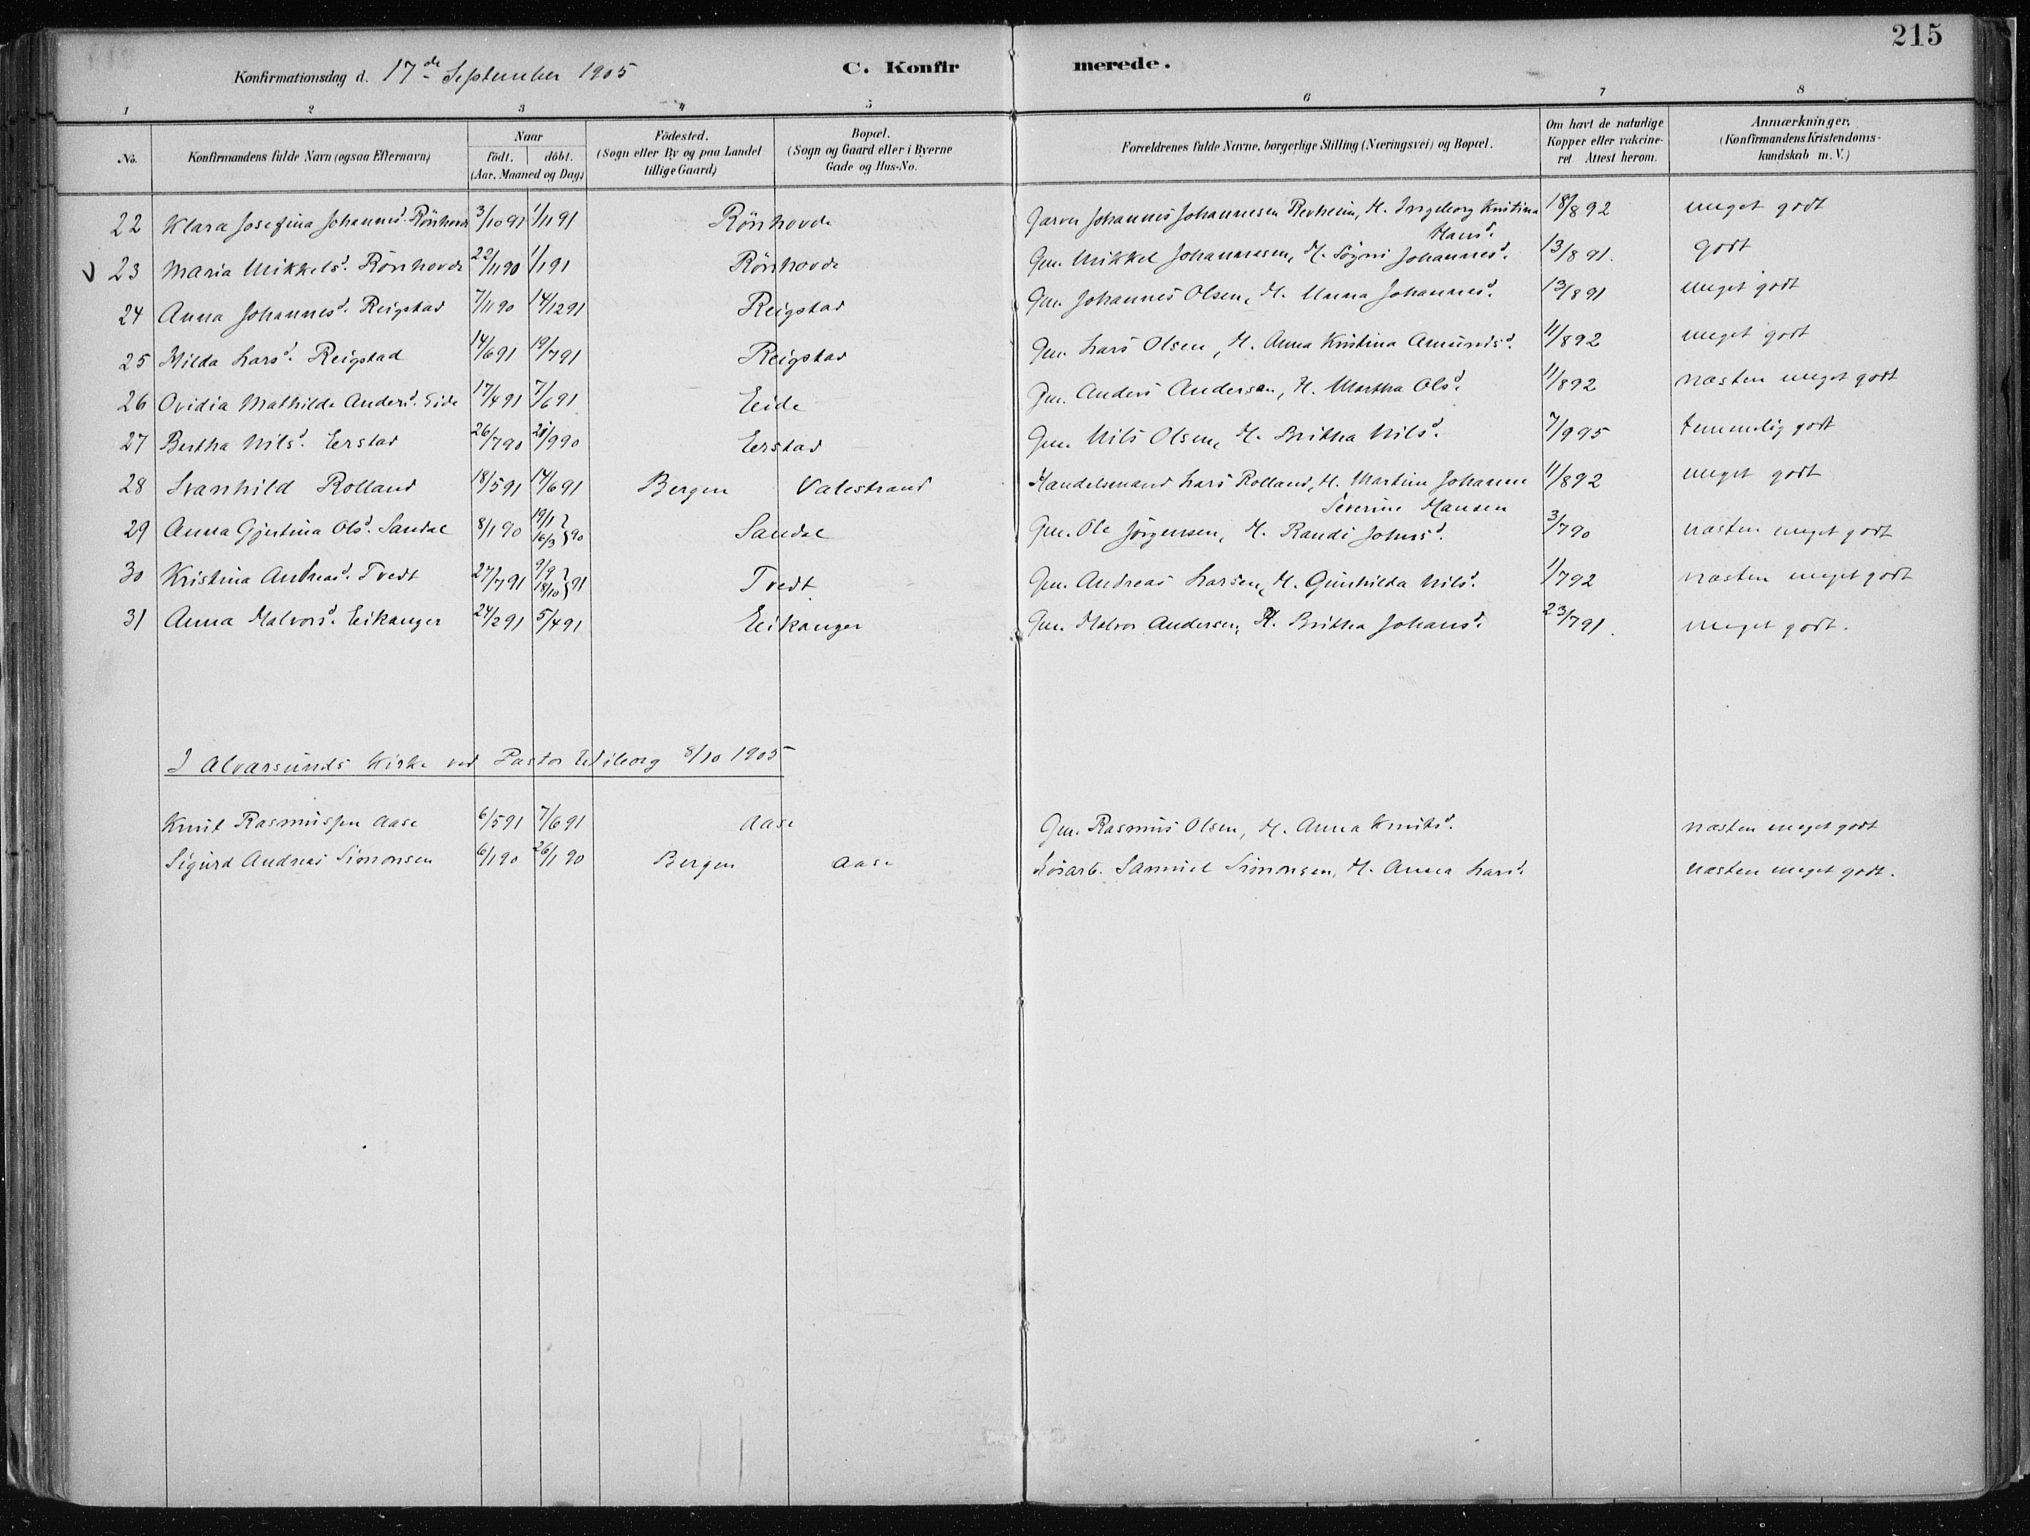 215
Konfirmationsdag d. 17de September 1905 C. Konfirmerede.
1 2 3 4 5 6 7 8
No. Konfirmandens fulde Navn (ogsaa Efternavn) Naar födt. döbt. (Aar, Maaned og Dag) Födested. (Sogn eller By og paa Landet tillige Gaard) Bopæl. (Sogn og Gaard eller i Byerne Gade og Hus-No. Forældrenes fulde Navne, borgerlige Stilling (Næringsvei) og Bopæl. Om havt de naturlige Kopper eller vakcineret Attest herom. Anmærkninger. (Konfirmandens Kristendomskundskab m. V.)
22 Klara Josefina Johannesd. Rönhovde 3/10 91 1/11 91 Rönhovde Garver Johannes Johannesen Revheim, H. Ingeborg Kristina Hansd. 18/8 92 meget godt
23 Maria Mikkelsd. Rönhovde 22/11 90 1/1 91 Rönhovde Gm. Mikkel Johannesen, H. Sögni Johannesd. 13/8 91. godt
24 Anna Johannesd. Reigstad 7/11 90 14/12 91 Reigstad Gm. Johannes Olsen, H. Unna Johannesd. 13/8 91 meget godt
25 Hilda Larsd. Reigstad 14/6 91 19/7 91 Reigstad Gm. Lars Olsen, H. Anna Kristina Amundsd. 11/8 92 meget godt
26 Ovidia Mathilde Andersd. Eide 17/4 91 7/6 91 Eide Gm. Anders Andersen, H. Martha Olsd. 11/8 92 næsten meget godt
27 Bertha Nilsd. Eerstad 26/7 90 21/9 90 Eerstad Gm. Nils Olsen, H. Britha Nilsd. 7/9 95 temmelig godt
28 Svanhild Rolland 18/5 91 14/6 91 Bergen Valestrand Handelsmand Lars Rolland, H. Martine Johanne Severine Hansen 11/8 92 meget godt
29 Anna Gjertina Olsd. Sandal 8/1 90 19/1 16/3 } 90 Sandal Gm. Ole Jörgensen, H. Randi Johnsd. 3/7 90 næsten meget godt
30 Kristina Andreasd. Tvedt 27/7 91 9/9 18/10 } 91 Tvedt Gm. Andreas Larsen, H. Gunhilda Nilsd. 1/7 92 næsten meget godt
31 Anna Halvorsd. Eikanger 24/2 91 5/4 91 Eikanger Gm. Halvor Andersen, H. Britha Johansd. 23/7 91. meget godt.
I Alversunds Kirke ved Pastor Wiborg 8/10 1905
Knut Rasmussen Aase 6/5 91 7/6 91 Aase Gm. Rasmus Olsen, H. Anna Knutsd. næsten meget godt
Sigurd Andreas Simonsen 6/1 90 26/1 90 Bergen Aase Lösarb. Samuel Simonsen, H. Anna Larsd. næsten meget godt.